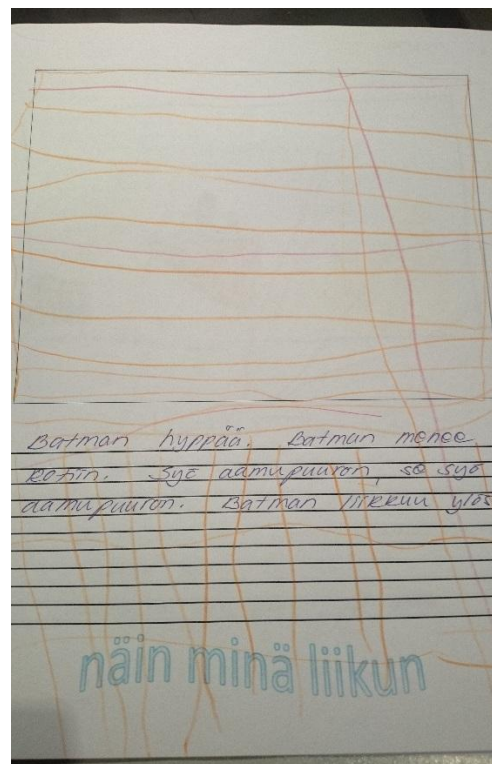 Batman hyppää. Batman menee
kotiin. Syö aamupuuron, se syö
aamupuuron. Batman liikkuu ylös
näin minä liikun